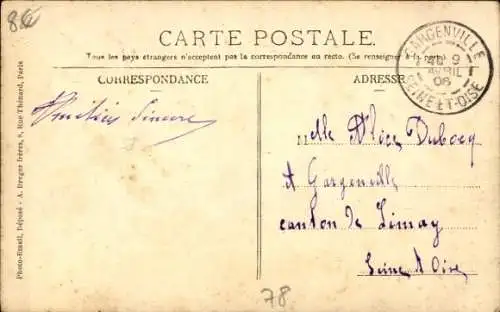 86
CARTE POSTALE.
Tous les pays étrangers n'acceptent pas la correspondance au recto. (Se renseigner à la poste)
CORRESPONDANCE
ADRESSE
GARGENVILLE
9
AVRIL
06
SEINE-ET-OISE
Amitiés Sincère
Mlle Alice Dubocq
A Gargenville
canton de Limay
Seine & Oise
78
Photo-Email, Déposé - A. Breger frères, 9, Rue Thénard, Paris